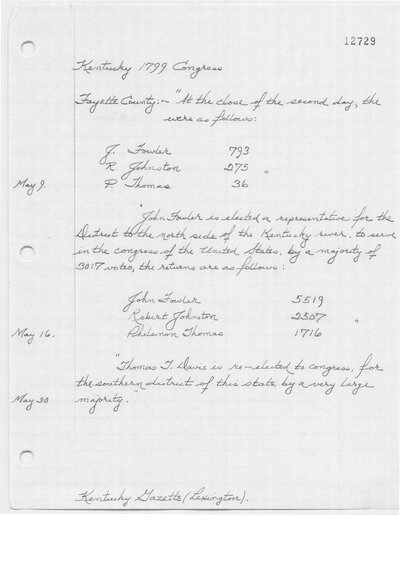 12729
Kentucky 1799 Congress
Fayette County:- "At the close of the second day, the
were as follows:
J. Fowler 793
R. Johnston 275 "
May 9. P. Thomas 36
"John Fowler is elected a representative for the
District to the north side of the Kentucky river, to serve
in the congress of the United States, by a majority of
3017 votes, the returns are as follows:
John Fowler 5519
Robert Johnston 2507 "
May 16. Philemon Thomas 1716
"Thomas T. Davis is re-elected to congress, for
the southern district of this state, by a very large
May 30 majority."
Kentucky Gazette (Lexington).